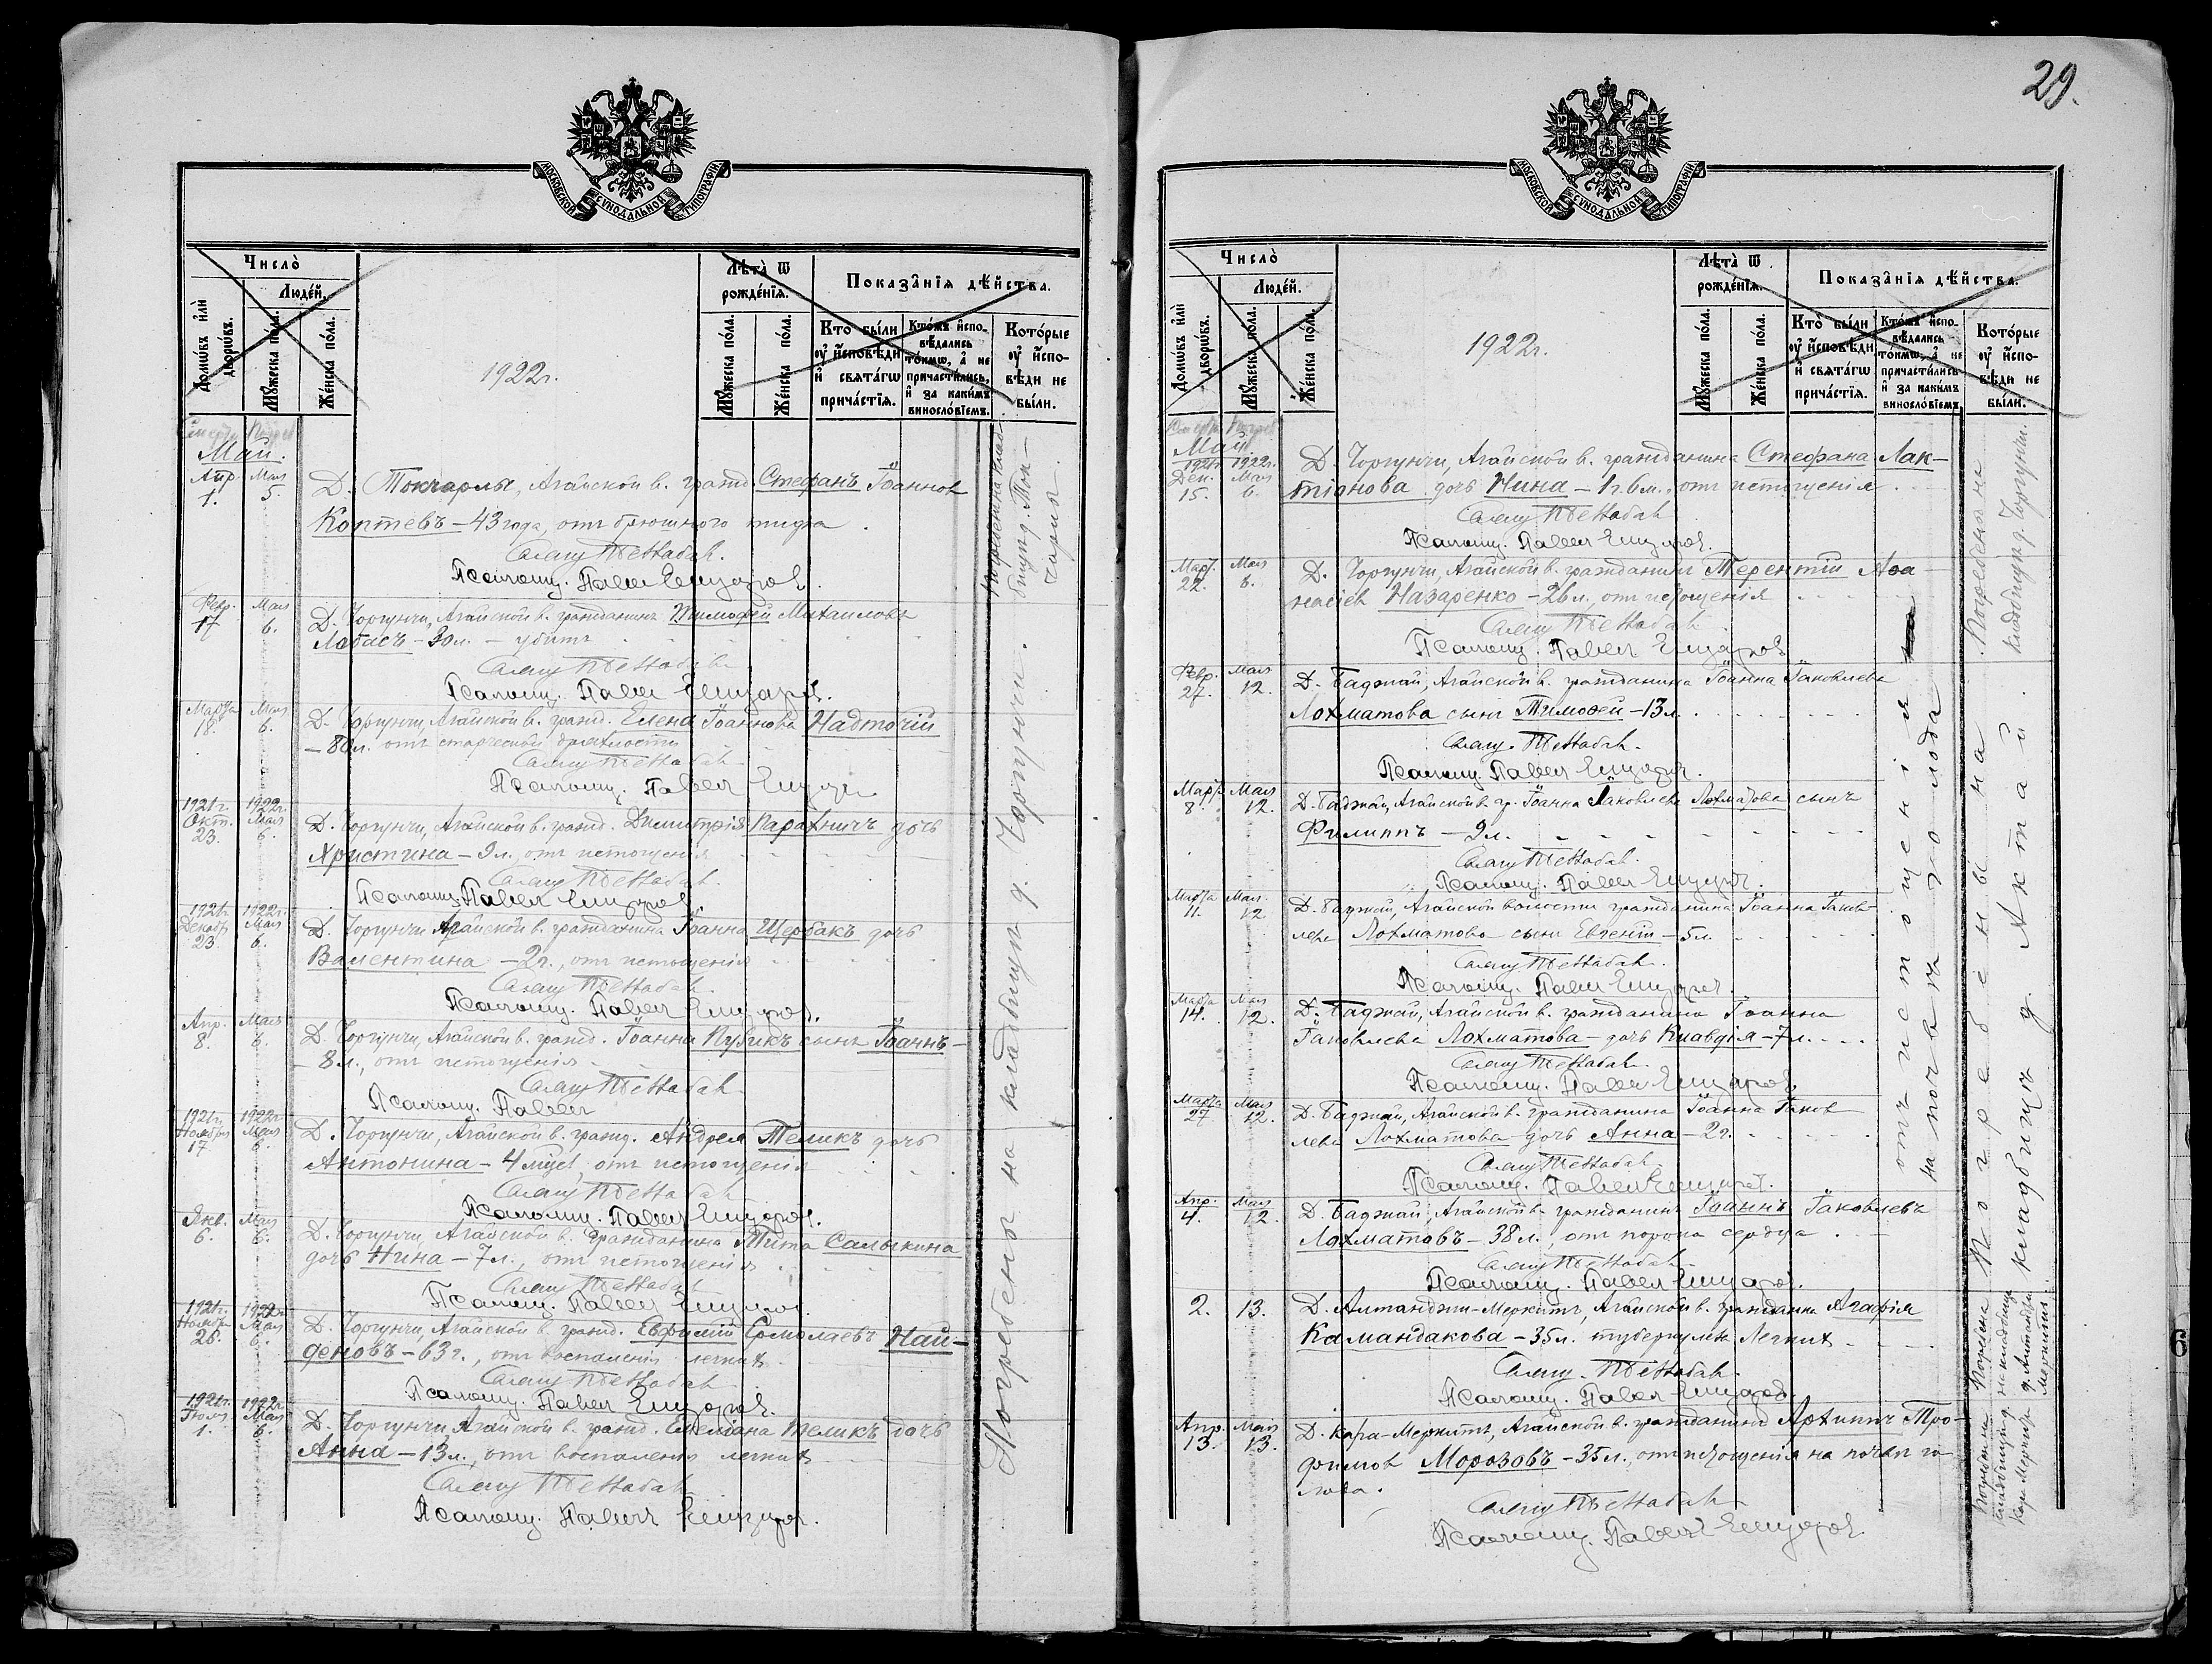 МОСКОВСКОЙ СѴНОДАЛЬНОЙ ТИПОГРАФІИ.
Число̀
Домѡ́въ и҆лѝ дворѡ́въ.
Люде́й.
Мꙋ́жеска по́ла.
Же́нска по́ла.
1922г.
Лѣ́та ѿ рожде́нїѧ.
Мꙋ́жеска по́ла.
Же́нска по́ла.
Показа̑нїѧ дѣ́йства.
Кто̀ бы́ли ᲂу҆ и҆сповѣ́ди и҆ свѧта́гѡ прича́стїѧ.
Кто́жъ и҆спо-
вѣ́дались то́кмѡ, а҆ не причасти́лись, и҆ за каки́мъ виносло́вїемъ.
Кото́рые ᲂу҆ и҆спо-
вѣ́ди не бы́ли.
Смерти Погреб
Май.
Апр. 1. Мая 5.
Д. Токчарлы, Агайской в. гражд. Стефанъ Іоаннов
Коптевъ – 43 года, отъ брюшного тифа
Псаломщ. Павел
Погребенъ на клад-
бищѣ д. Ток-
чарлы.
Февр. 17 Мая 6.
Д. Чоргунчи, Агайской в. гражданинъ Тимофей Михаиловъ
Лобасъ – 30л. – убитъ
Псаломщ. Павел
Марта 18. Мая 6.
Д. Чоргунчи, Агайской в. гражд. Елена Іоаннова Надточій
– 80л. отъ старческой дряхлости
Псаломщ. Павел
1921г. Окт. 23. 1922г. Мая 6.
Д. Чоргунчи, Агайской в. гражд. Димитрія Парахничъ дочь
Христина – 9л., отъ истощенія
Псаломщ. Павел
1921г. Декабр 23 1922г. Мая 6.
Д. Чоргунчи Агайской в. гражданина Іоанна Щербакъ дочь
Валентина – 2г., отъ истощенія
Псаломщ. Павел
Апр. 8. Мая 6.
Д. Чоргунчи, Агайской в. гражд. Іоанна Пузикъ сынъ Іоаннъ –
– 8л., отъ истощенія
Псаломщ. Павел
1921г. Ноября 17 1922г. Мая 6.
Д. Чоргунчи, Агайской в. гражд. Андрея Теликъ дочь
Антонина – 4 мѣс., отъ истощенія
Псаломщ. Павел
Янв. 6. Мая 6.
Д. Чоргунчи, Агайской в. гражданина Тита Салыкина
дочь Нина – 7л., отъ истощенія
Псаломщ. Павел
1921г. Ноября 26. 1922г. Мая 6.
Д. Чоргунчи, Агайской в. гражд. Евфимій Ермолаевъ Най-
деновъ – 63г., отъ воспаленія легкихъ
Псаломщ. Павел
1921г. Іюля 1. 1922г. Мая 6.
Д. Чоргунчи, Агайской в. гражд. Емеліана Теликъ дочь
Анна – 13л., отъ воспаленія легкихъ
Псаломщ. Павел
Погребены на кладбищѣ д. Чоргунчи.
29.
МОСКОВСКОЙ СѴНОДАЛЬНОЙ ТИПОГРАФІИ.
Число̀
Домѡ́въ и҆лѝ дворѡ́въ.
Люде́й.
Мꙋ́жеска по́ла.
Же́нска по́ла.
1922г.
Лѣ́та ѿ рожде́нїѧ.
Мꙋ́жеска по́ла.
Же́нска по́ла.
Показа̑нїѧ дѣ́йства.
Кто̀ бы́ли ᲂу҆ и҆сповѣ́ди и҆ свѧта́гѡ прича́стїѧ.
Кто́жъ и҆спо-
вѣ́дались то́кмѡ, а҆ не причасти́лись и҆ за каки́мъ виносло́вїемъ.
Кото́рые ᲂу҆ и҆спо-
вѣ́ди не бы́ли.
Смерти Погреб
Май
1921г. Дек. 15. 1922г. Мая 6.
Д. Чоргунчи, Агайской в. гражданина Стефана Лак-
тіонова дочь Нина – 1г. 6м., отъ истощенія
Псаломщ. Павел
Март. 22. Мая 6.
Д. Чоргунчи, Агайской в. гражданинъ Терентій Аѳа-
насіев Назаренко – 26л., отъ истощенія
Псаломщ. Павел
Погребены на
кладбищѣ д. Чоргунчи.
Февр. 27. Мая 12.
Д. Баджай, Агайской в. гражданина Іоанна Іаковлева
Лохматова сынъ Тимоѳей – 13л.
Псаломщ. Павел
Март. 8. Мая 12.
Д. Баджай, Агайской в. гр. Іоанна Іаковлева Лохматова сынъ
Филиппъ – 9л.
Псаломщ. Павел
Марта 11. Мая 12
Д. Баджай, Агайской волости гражданина Іоанна Іаков-
лева Лохматова сынъ Евгеній – 5л.
Псаломщ. Павел
Марта 14. Мая 12.
Д. Баджай, Агайской в. гражданина Іоанна
Іаковлева Лохматова – дочь Клавдія – 7л.
Псаломщ. Павел
Марта 27. Мая 12.
Д. Баджай, Агайской в. гражданина Іоанна Іаков
лева Лохматова дочь Анна – 2г.
Псаломщ. Павел
Апр. 4. Мая 12.
Д. Баджай, Агайской в. гражданинъ Іоаннъ Іаковлевъ
Лохматовъ – 38л., отъ порока сердца
Псаломщ. Павел
отъ истощенія
на почвѣ голода
Погребены на
кладбищѣ д. Актай.
2. 13.
Д. Алтанджи-Меркитъ, Агайской в. гражданка Агафія
Камандакова – 35л. туберкулеза легкихъ
Псаломщ. Павел
Погребена на кладбищѣ
д. Алтанджи
Меркитъ.
Апр. 13. Мая 13.
Д. Кара-Меркитъ, Агайской в. гражданинъ Архиппъ Тро-
фимов Морозовъ – 35л., отъ истощенія на почвѣ го-
лода.
Псаломщ. Павел
Погребенъ на
кладбищѣ д.
Кара Меркитъ
6